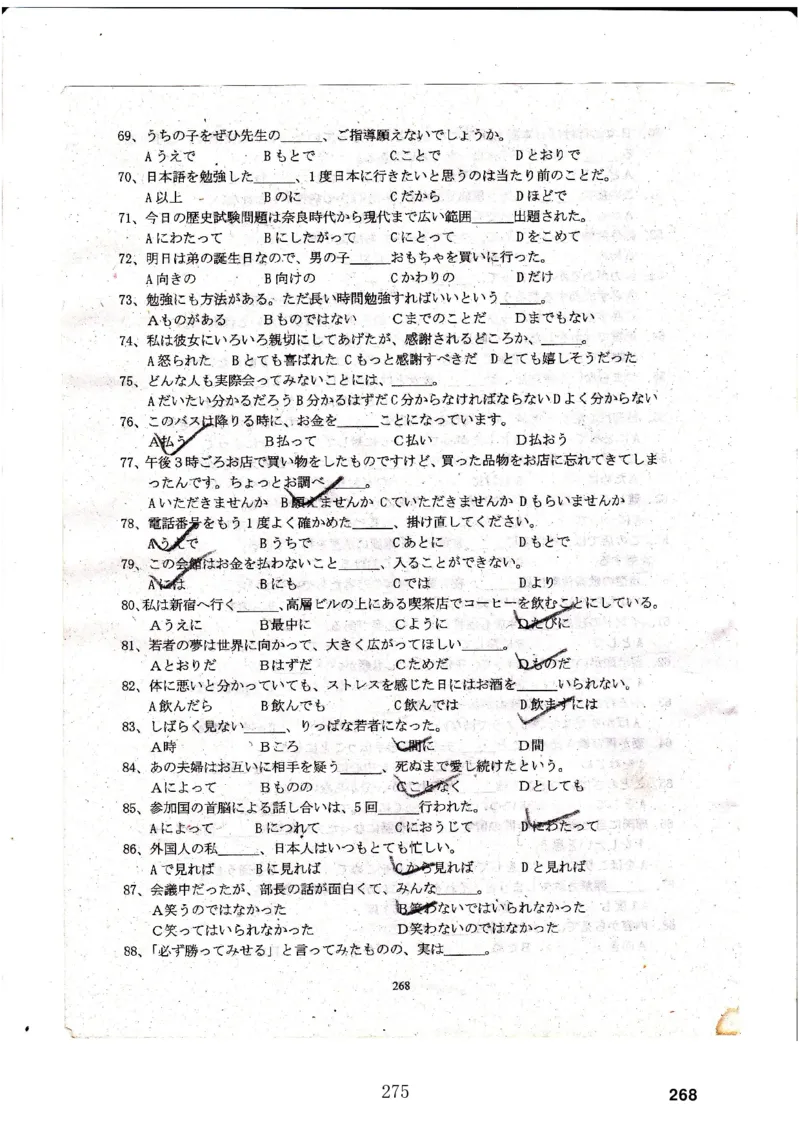 69、うちの子をぜひ先生の_____、ご指導願えないでしょうか。
Aうえで Bもとで Cことで Dとおりで
70、日本語を勉強した_____、1度日本に行きたいと思うのは当たり前のことだ。
A以上 Bのに Cだから Dほどで
71、今日の歴史試験問題は奈良時代から現代まで広い範囲_____出題された。
Aにわたって Bにしたがって Cにとって Dをこめて
72、明日は弟の誕生日なので、男の子_____おもちゃを買いに行った。
A向きの B向けの Cかわりの Dだけ
73、勉強にも方法がある。ただ長い時間勉強すればいいという_____。
Aものがある Bものではない Cまでのことだ Dまでもない
74、私は彼女にいろいろ親切にしてあげたが、感謝されるどころか、_____。
A怒られた Bとても喜ばれた Cもっと感謝すべきだ Dとても嬉しそうだった
75、どんな人も実際会ってみないことには、_____。
Aだいたい分かるだろう B分かるはずだ C分からなければならない Dよく分からない
76、このバスは降りる時に、お金を_____ことになっています。
A払う B払って C払い D払おう
77、午後3時ごろお店で買い物をしたものですけど、買った品物をお店に忘れてきてしま
ったんです。ちょっとお調べ_____。
Aいただきませんか B願えませんか Cていただきませんか Dもらいませんか
78、電話番号をもう1度よく確かめた_____、掛け直してください。
Aうえで Bうちで Cあとに Dもとで
79、この会館はお金を払わないこと_____、入ることができない。
Aには Bにも Cでは Dより
80、私は新宿へ行く_____、高層ビルの上にある喫茶店でコーヒーを飲むことにしている。
Aうえに B最中に Cように Dたびに
81、若者の夢は世界に向かって、大きく広がってほしい_____。
Aとおりだ Bはずだ Cためだ Dものだ
82、体に悪いと分かっていても、ストレスを感じた日にはお酒を_____いられない。
A飲んだら B飲んでも C飲んでは D飲まずには
83、しばらく見ない_____、りっぱな若者になった。
A時 Bころ C間に D間
84、あの夫婦はお互いに相手を疑う_____、死ぬまで愛し続けたという。
Aによって Bものの Cことなく Dとしても
85、参加国の首脳による話し合いは、5回_____行われた。
Aによって Bにつれて Cにおうじて Dにわたって
86、外国人の私_____、日本人はいつもとても忙しい。
Aで見れば Bに見れば Cから見れば Dと見れば
87、会議中だったが、部長の話が面白くて、みんな_____。
A笑うのではなかった B笑わないではいられなかった
C笑ってはいられなかった D笑わないのではなかった
88、「必ず勝ってみせる」と言ってみたものの、実は_____。
268
275
268